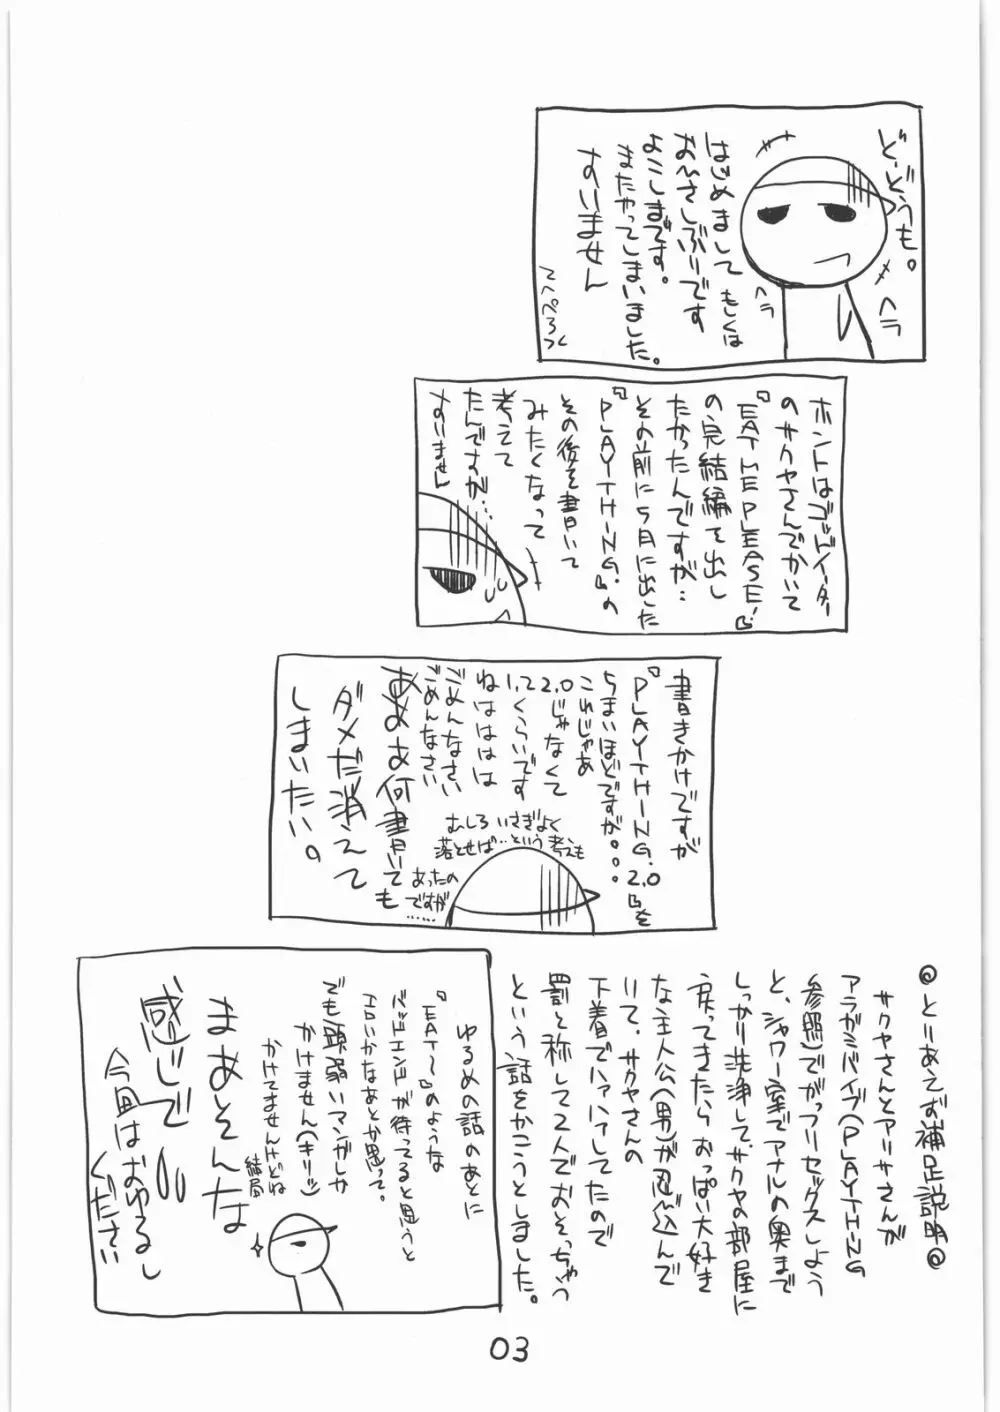 ど、どうも。
ヘラ
ヘラ
はじめまして もしくは
おひさしぶりです
よこしまです。
またやってしまいました。
すいません
てへぺろっ
ホントはゴッドイーター
のサクヤさんでかいて
『EAT ME PLEASE!』
の完結編を出し
たかったんですが…
その前に5月に出した
『PLAYTHING.』の
その後を書いて
みたくなって
考えて
たんですが…
すいません
書きかけですが
『PLAYTHING.2.0』を
ちまいほどですが。。。
これじゃあ
2.0じゃなくて
1.てくらいです
ねははは
ごめんなさい
ごめんなさい
ああお何書いても
ダメだ消えて
しまいたい。
むしろ いさぎよく
落とせば…という考えも
あったの
ですが
……
ゆるめの話のあとに
『EAT〜』のような
バッドエンドが待ってると思うと
エロいかなあとか思って。
でも頭弱いマンガしか
かけません(キリッ)
かけてませんけどね
結局
まあそんな
感じで
今回はおゆるし
ください
◎とりあえず補足説明◎
サクヤさんとアリサさんが
アラガミバイブ(PLAYTHING
参照)でがっフリセックスしよう
と、シャワー室でアナルの奥まで
しっかり洗浄して、サクヤの部屋に
戻ってきたら おっぱい大好き
な主人公(男)が忍び込んで
いて、サクヤさんの
下着でハァハァしてたので
罰と称して2人でおそっちゃう
という話をかこうとしました。
03